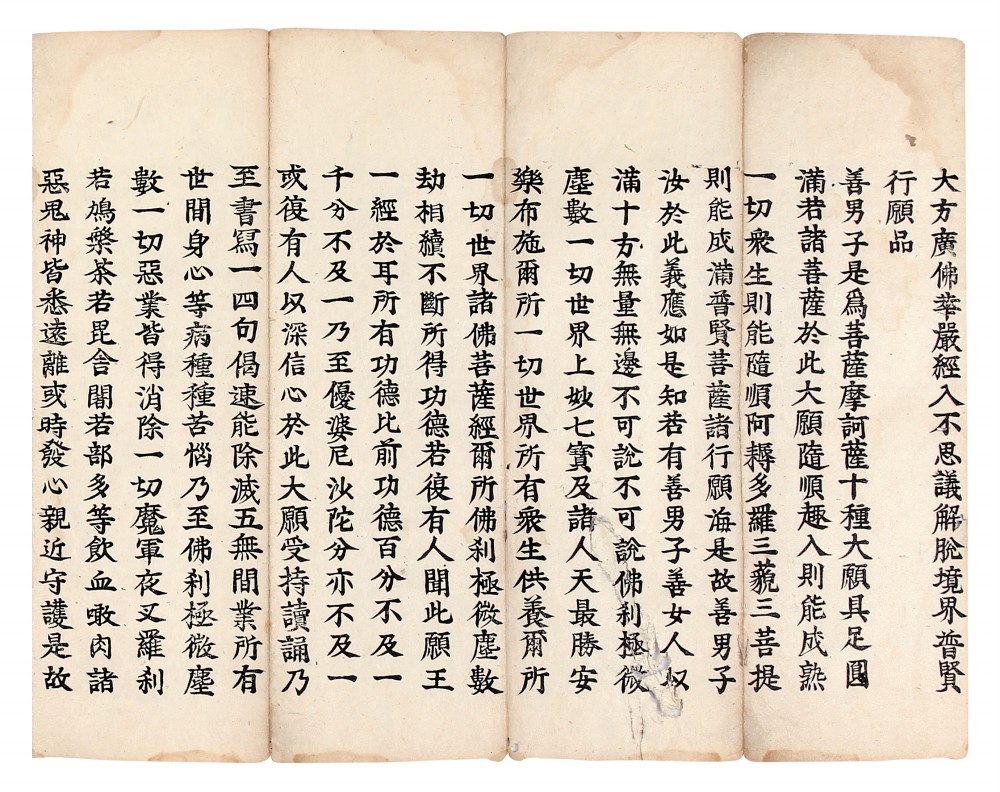 大方廣佛華嚴經入不思議解脫境界普賢
行願品
善男子是爲菩薩摩訶薩十種大願具足圓
滿若諸菩薩於此大願隨順趣入則能成熟
一切衆生則能隨順阿耨多羅三藐三菩提
則能成滿普賢菩薩諸行願海是故善男子
汝於此義應如是知若有善男子善女人以
滿十方無量無邊不可說不可說佛刹極微
塵數一切世界上妙七寶及諸人天最勝安
樂布施爾所一切世界所有衆生供養爾所
一切世界諸佛菩薩經爾所佛刹極微塵數
劫相續不斷所得功德若復有人聞此願王
一經於耳所有功德比前功德百分不及一
千分不及一乃至優婆尼沙陀分亦不及一
或復有人以深信心於此大願受持讀誦乃
至書寫一四句偈速能除滅五無間業所有
世間身心等病種種苦惱乃至佛刹極微塵
數一切惡業皆得消除一切魔軍夜叉羅刹
若鳩槃茶若毘舍闍若部多等飲血噉肉諸
惡鬼神皆悉遠離或時發心親近守護是故